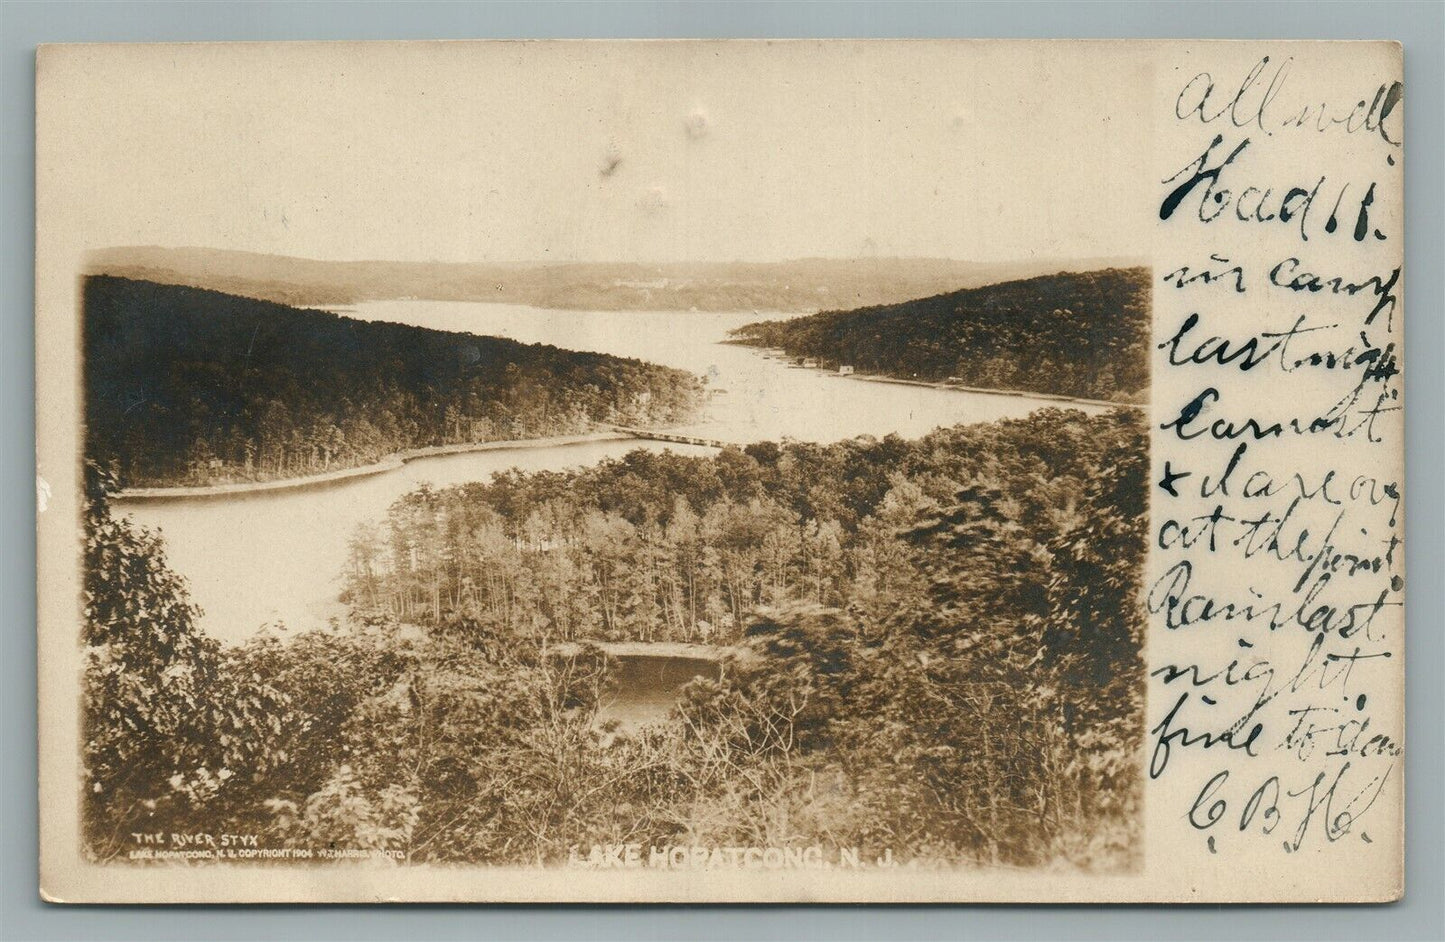 All well.
Had 11.
in camp
last night
Earnest
+ I are over
at the point.
Rain last
night.
fine to day
C. B. H.
THE RIVER STYX
LAKE HOPATCONG, N. J. COPYRIGHT 1904 W.J. HARRIS, PHOTO.
LAKE HOPATCONG, N. J.